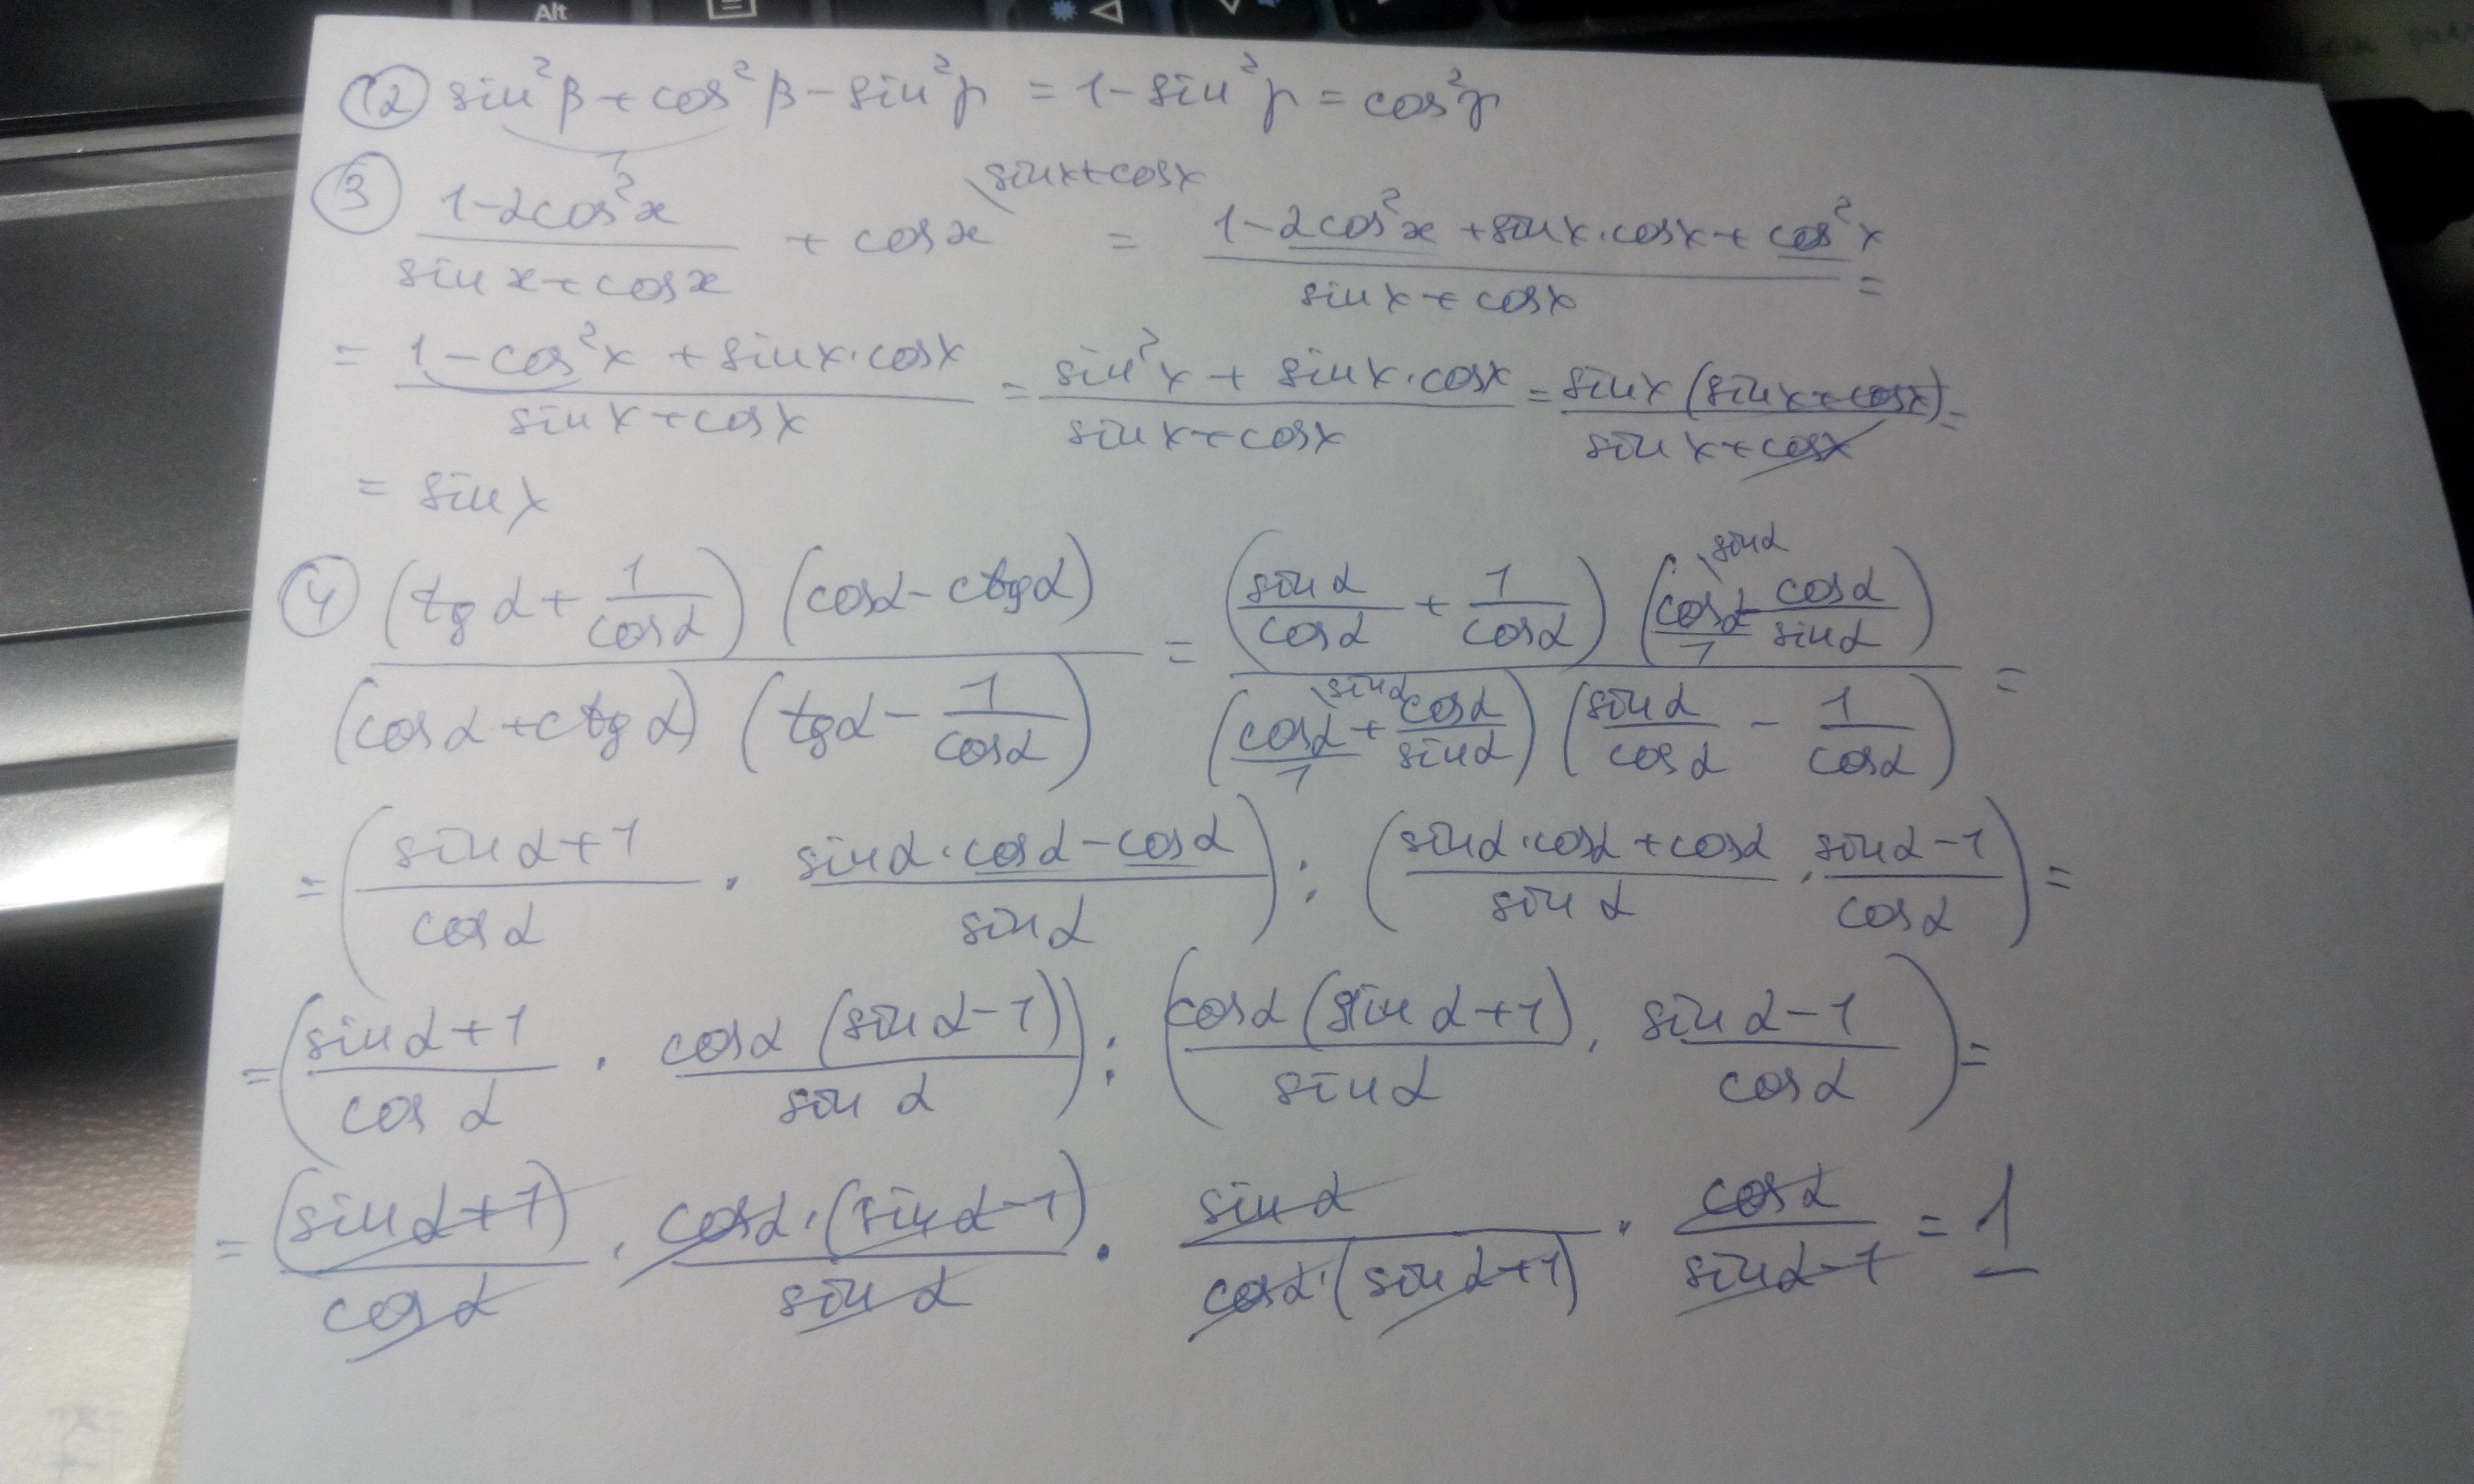 Alt
(2) sin²β + cos²β − sin²γ = 1 − sin²γ = cos²γ
1
(3) (1−2cos²x)/(sin x + cos x) + cos x \sin x + cos x = (1−2cos²x + sin x·cos x + cos²x)/(sin x + cos x) =
= (1−cos²x + sin x·cos x)/(sin x + cos x) = (sin²x + sin x·cos x)/(sin x + cos x) = (sin x (sin x + cos x))/(sin x + cos x) =
= sin x
(4) ((tg α + 1/cos α) (cos α − ctg α))/((cos α + ctg α) (tg α − 1/cos α)) = ((sin α/cos α + 1/cos α) (cos α/1 \sin α − cos α/sin α))/((cos α/1 \sin α + cos α/sin α) (sin α/cos α − 1/cos α)) =
= ((sin α + 1)/cos α · (sin α·cos α − cos α)/sin α) : ((sin α·cos α + cos α)/sin α · (sin α − 1)/cos α) =
= ((sin α + 1)/cos α · cos α (sin α − 1)/sin α) : (cos α (sin α + 1)/sin α · (sin α − 1)/cos α) =
= (sin α + 1)/cos α · cos α·(sin α − 1)/sin α · sin α/(cos α·(sin α + 1)) · cos α/(sin α − 1) = 1